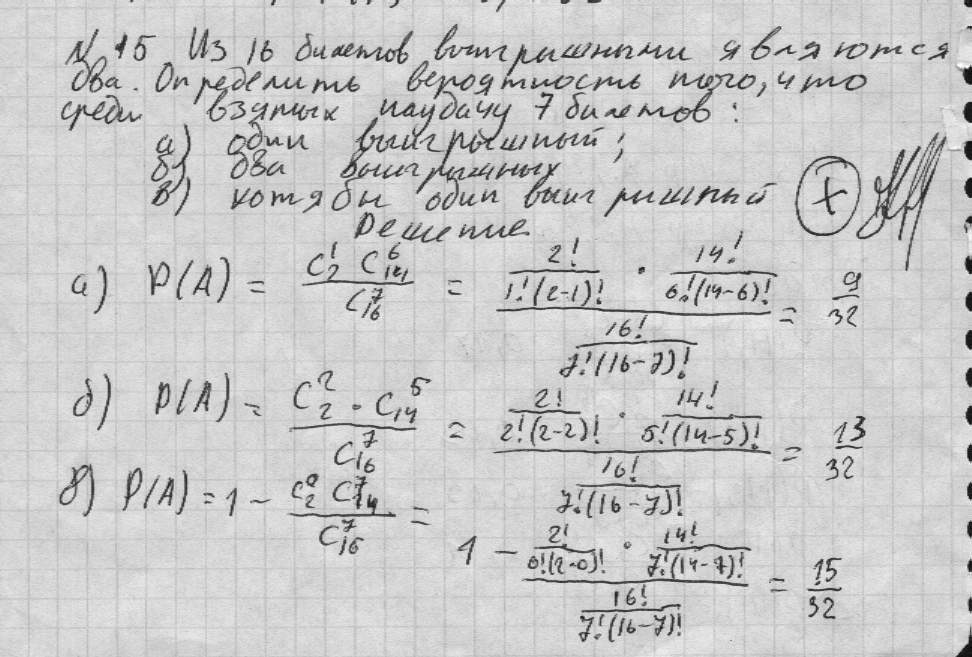 № 15 Из 16 билетов выигрышными являются
два. Определить вероятность того, что
среди взятых наудачу 7 билетов:
а) один выигрышный;
б) два выигрышных
в) хотя бы один выигрышный
Решение
а) P(A) = (C_2^1 C_14^6) / C_16^7 = (2! / (1!(2-1)!) · 14! / (6!(14-6)!)) / (16! / (7!(16-7)!)) = 9/32
б) P(A) = (C_2^2 · C_14^5) / C_16^7 = (2! / (2!(2-2)!) · 14! / (5!(14-5)!)) / (16! / (7!(16-7)!)) = 13/32
в) P(A) = 1 - (C_2^0 C_14^7) / C_16^7 =
1 - (2! / (0!(2-0)!) · 14! / (7!(14-7)!)) / (16! / (7!(16-7)!)) = 15/32